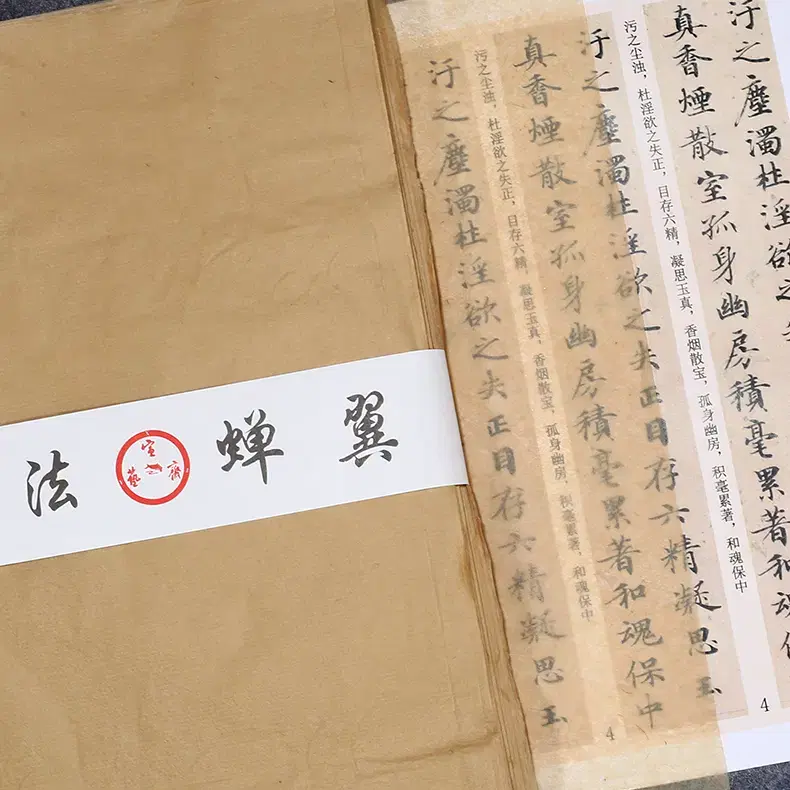 法 蝉翼
宣藝齋
汙之塵濁杜淫欲之失正目存六精凝思玉
污之尘浊，杜淫欲之失正，目存六精，凝思玉真，香烟散宝，孤身幽房，积毫累著，和魂保中
真香煙散室孤身幽房積毫累著和魂保中
4
汙之塵濁杜淫欲之失正目存六精凝思玉
污之尘浊，杜淫欲之失正，目存六精，凝思玉真，香烟散宝，孤身幽房，积毫累著，和魂保中
真香煙散室孤身幽房積毫累著和魂保
4
汙之塵濁杜淫欲之